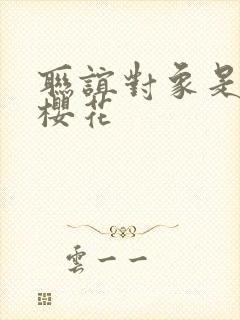 聯誼對象是
櫻花
雲一一